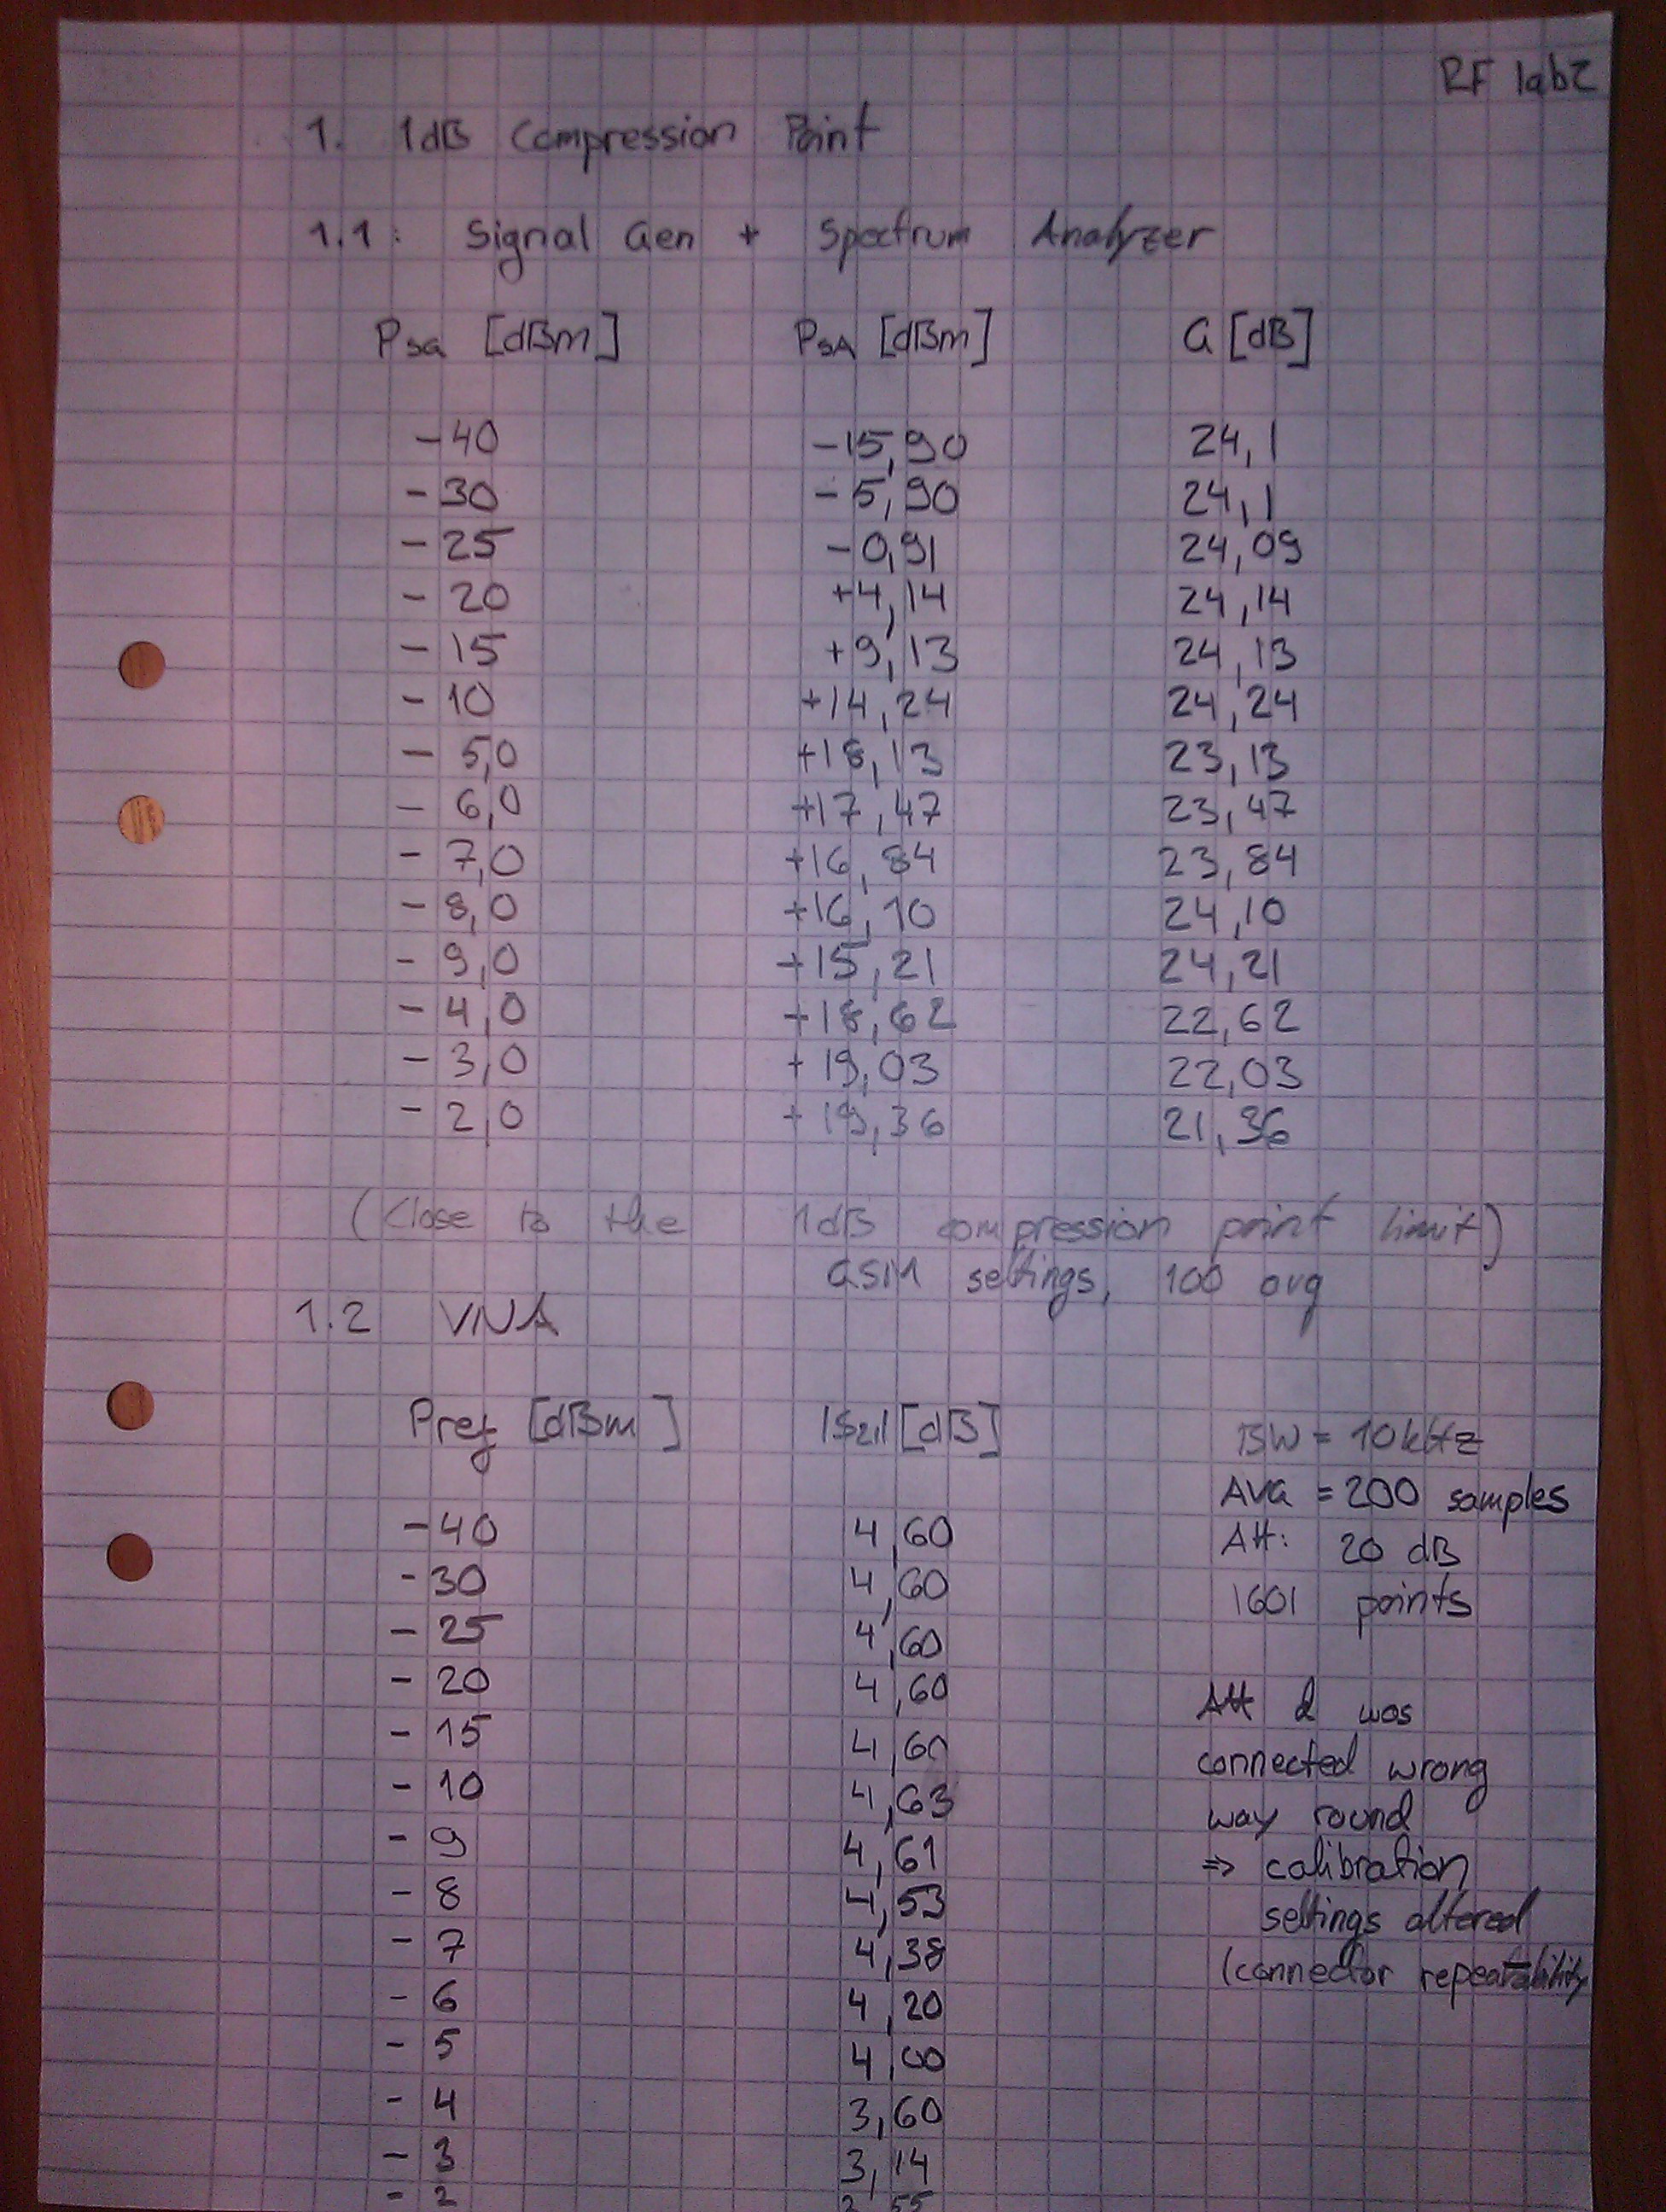 RF lab2
1. 1dB Compression Point
1.1: Signal Gen + Spectrum Analyzer
PSG [dBm] PSA [dBm] G [dB]
-40 -15,90 24,1
-30 -5,90 24,1
-25 -0,91 24,09
-20 +4,14 24,14
-15 +9,13 24,13
-10 +14,24 24,24
-5,0 +18,13 23,13
-6,0 +17,47 23,47
-7,0 +16,84 23,84
-8,0 +16,10 24,10
-9,0 +15,21 24,21
-4,0 +18,62 22,62
-3,0 +19,03 22,03
-2,0 +19,36 21,36
(Close to the 1dB compression point limit)
GSM settings, 100 avg
1.2 VNA
Pref [dBm] |S21| [dB]
-40 4,60
-30 4,60
-25 4,60
-20 4,60
-15 4,60
-10 4,63
-9 4,61
-8 4,53
-7 4,38
-6 4,20
-5 4,00
-4 3,60
-3 3,14
-2 2,55
BW = 10kHz
AVG = 200 samples
Att: 20 dB
1601 points
Att 2 was
connected wrong
way round
⇒ calibration
settings altered
(connector repeatability